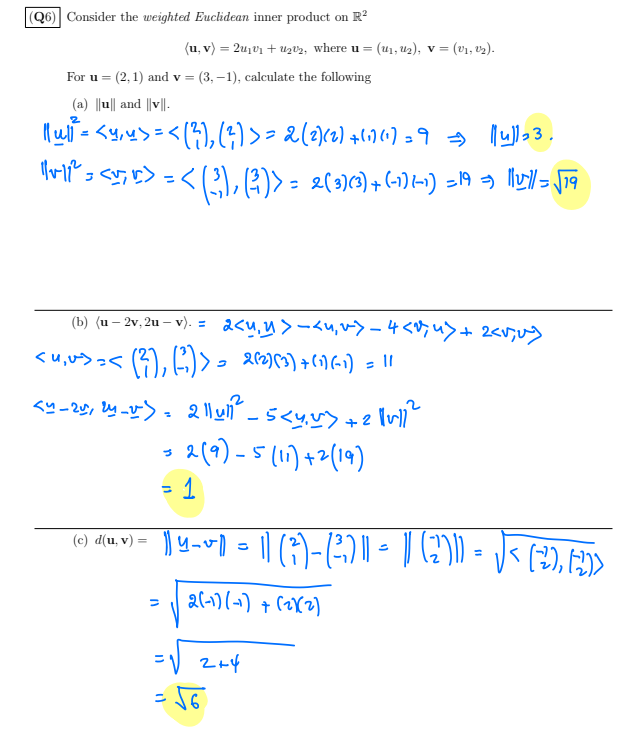 (Q6) Consider the weighted Euclidean inner product on ℝ²
⟨u, v⟩ = 2u₁v₁ + u₂v₂, where u = (u₁, u₂), v = (v₁, v₂).
For u = (2, 1) and v = (3, −1), calculate the following
(a) ‖u‖ and ‖v‖.
‖u‖² = <u, u> = <(2 1), (2 1)> = 2(2)(2) + (1)(1) = 9 ⇒ ‖u‖ = 3.
‖v‖² = <v, v> = <(3 -1), (3 -1)> = 2(3)(3) + (-1)(-1) = 19 ⇒ ‖v‖ = √19
(b) ⟨u − 2v, 2u − v⟩. = 2<u, u> - <u, v> - 4<v, u> + 2<v, v>
<u, v> = <(2 1), (3 -1)> = 2(2)(3) + (1)(-1) = 11
<u - 2v, 2u - v> = 2‖u‖² - 5<u, v> + 2‖v‖²
= 2(9) - 5(11) + 2(19)
= 1
(c) d(u, v) = ‖u - v‖ = ‖(2 1) - (3 -1)‖ = ‖(-1 2)‖ = √<(-1 2), (-1 2)>
= √2(-1)(-1) + (2)(2)
= √2+4
= √6